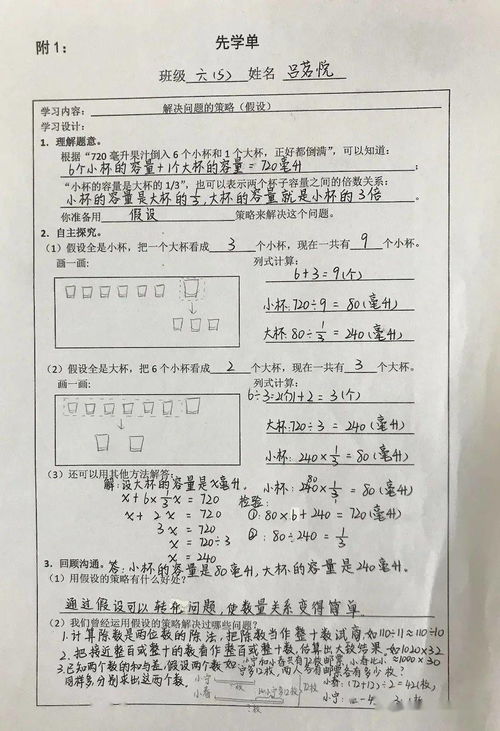 附1：
先学单
班级 六(5) 姓名 吕茗悦
学习内容： 解决问题的策略（假设）
学习设计：
1. 理解题意。
根据“720毫升果汁倒入6个小杯和1个大杯，正好都倒满”，可以知道：
6个小杯的容量+1个大杯的容量=720毫升；
“小杯的容量是大杯的1/3”，也可以表示两个杯子容量之间的倍数关系：
小杯的容量是大杯的1/3，大杯的容量就是小杯的3倍。
你准备用 假设 策略来解决这个问题。
2. 自主探究。
（1）假设全是小杯，把一个大杯看成 3 个小杯，现在一共有 9 个小杯。
画一画： 列式计算：
6+3=9(个)
小杯:720÷9=80(毫升)
大杯:80÷1/3=240(毫升)
（2）假设全是大杯，把6个小杯看成 2 个大杯，现在一共有 3 个大杯。
画一画： 列式计算：
6÷3=2(个)1+2=3(个)
大杯:720÷3=240(毫升)
小杯:240×1/3=80(毫升)
（3）还可以用其他方法解答： 小杯:240×1/3=80(毫升)
解:设大杯的容量是x毫升。
x+6×1/3x=720 检验:
x+2x=720 ①:80×6+240=720(毫升)
3x=720 ②:80÷240=1/3
x=720÷3
x=240
3. 回顾沟通。答:小杯的容量是80毫升,大杯的容量是240毫升。
（1）用假设的策略有什么好处？
通过假设可以转化问题,使数量关系变得简单.
（2）我们曾经运用假设的策略解决过哪些问题？
1.计算除数是两位数的除法,把除数当作整十数试商,如110÷11≈110÷10
2.把接近整百或整十的数看作整百或整十数,估算出大致结果,如1020×32
≈1000×30
3.已知两个数的和与差,假设两个数
同样多,分别求出这两个数.
小春:(72+12)÷2=42(枚)